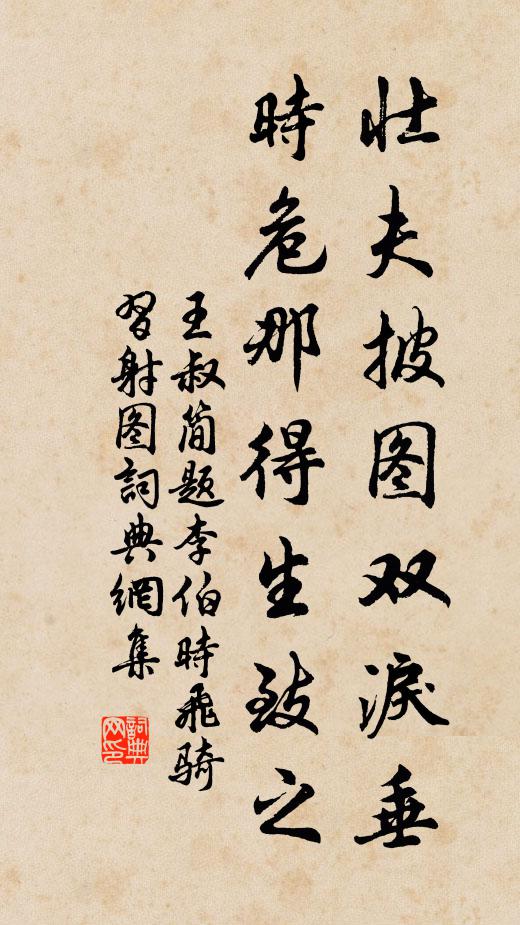 壮夫披图双淚垂
時危那得生致之
王叔简题李伯時飛骑
習射图詞典網集
詞典网印